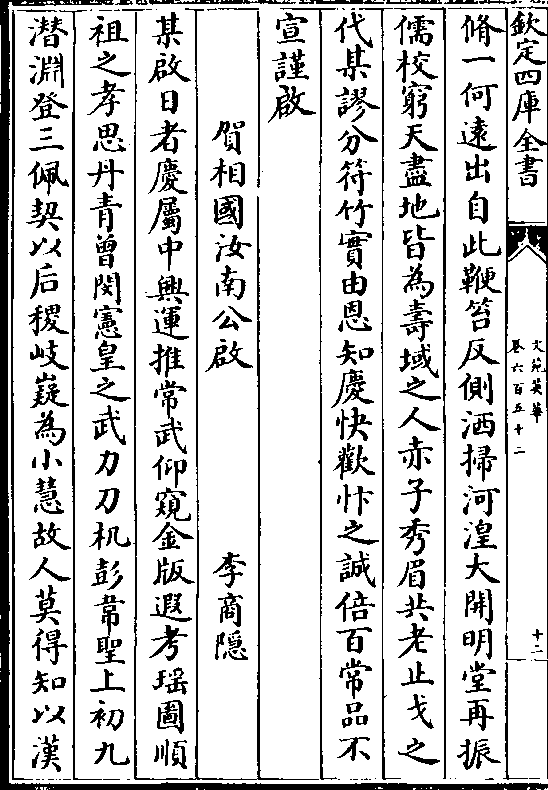 欽定四庫全書
文苑英華
卷六百五十二
十二
脩一何遠出自此鞭笞反側洒掃河湟大開明堂再振
儒校窮天盡地皆為壽域之人赤子秀眉共老止戈之
代某謬分符竹實由恩知慶快歡忭之誠倍百常品不
宣謹啟
賀相國汝南公啟 李商隠
某啟日者慶屬中興運推常武仰窺金版遐考瑶圖順
祖之孝思丹青曾閔憲皇之武力刀机彭韋聖上初九
潜淵登三佩契以后稷岐嶷為小慧故人莫得知以漢